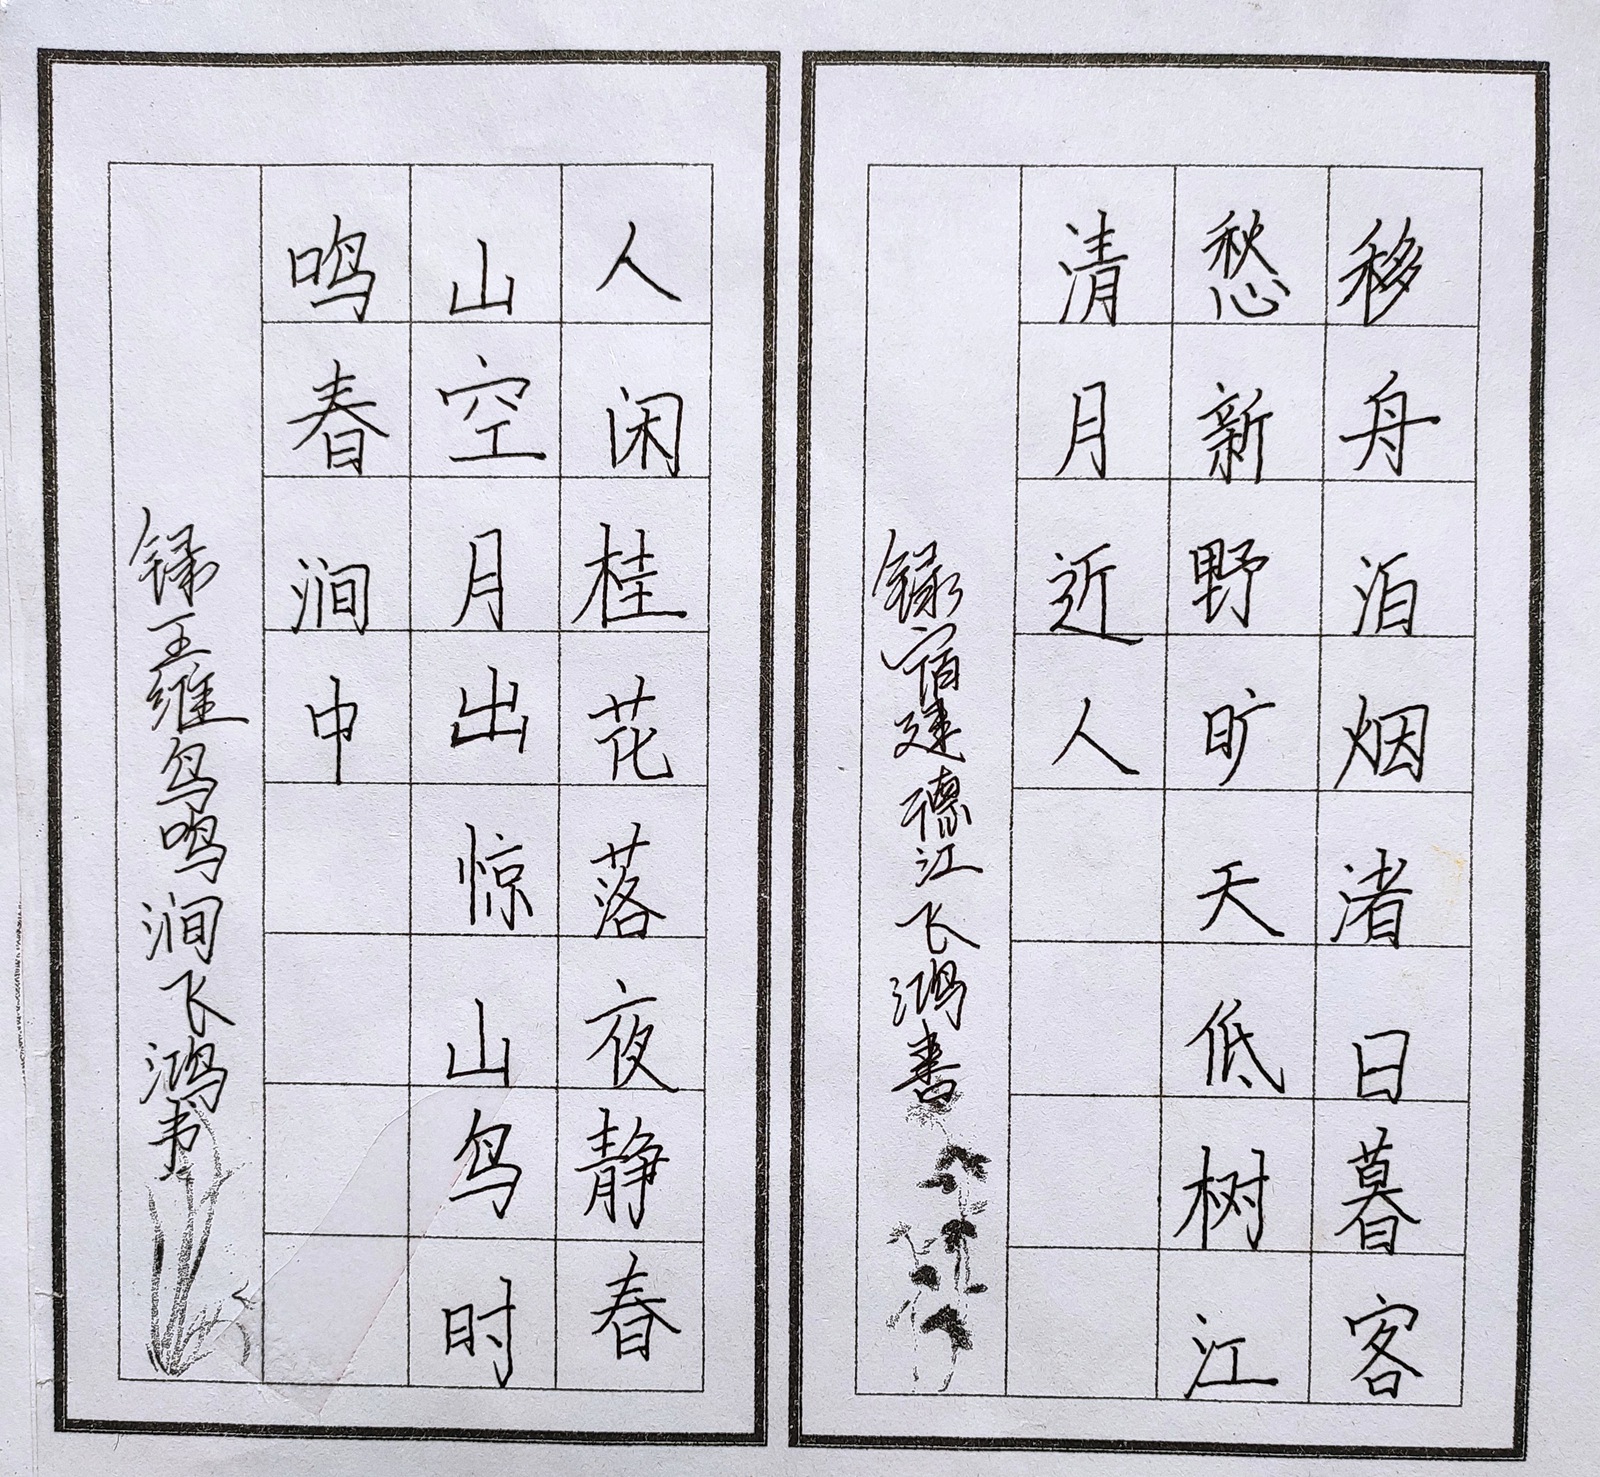 移舟泊烟渚日暮客
愁新野旷天低树江
清月近人
録宿建德江飞鸿书
人闲桂花落夜静春
山空月出惊山鸟时
鸣春涧中
録王维鸟鸣涧飞鸿书